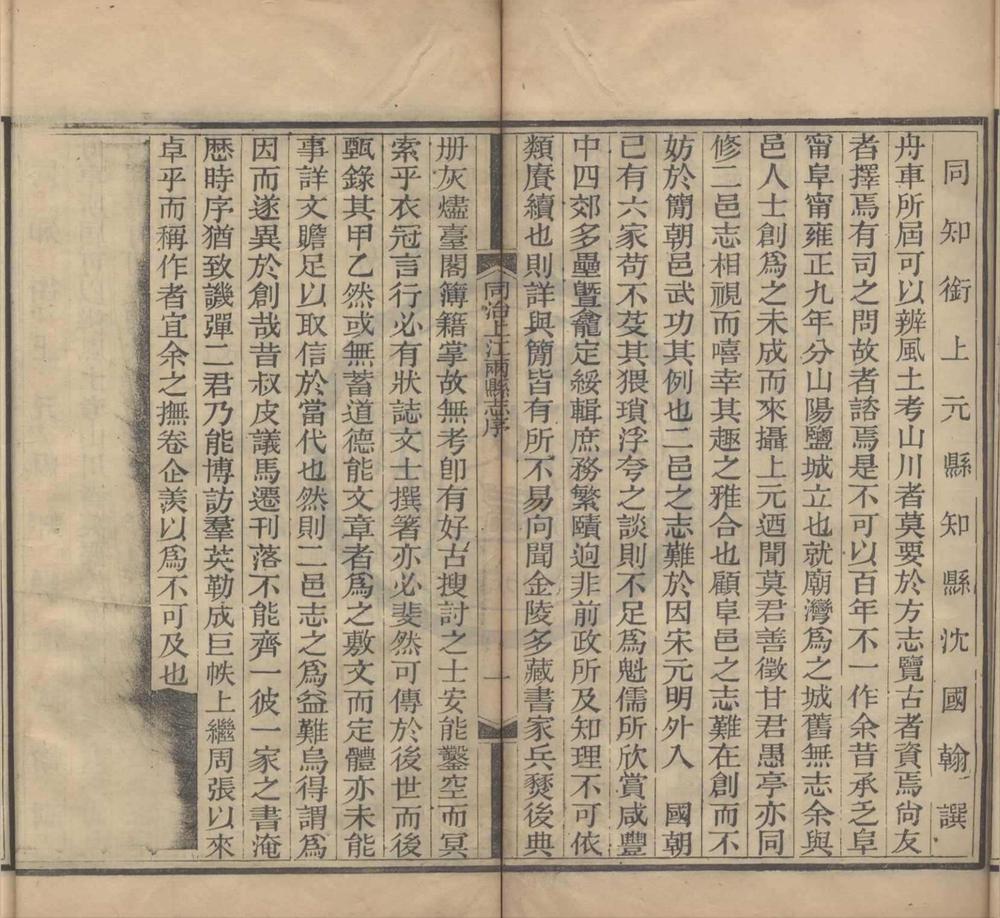 同知銜上元縣知縣沈國翰譔
舟車所屆可以辨風土考山川者莫要於方志覽古者資焉尙友
者擇焉有司之問故者諮焉是不可以百年不一作余昔承乏阜
甯阜甯雍正九年分山陽鹽城立也就廟灣爲之城舊無志余與
邑人士創爲之未成而來攝上元迺聞莫君善徵甘君愚亭亦同
修二邑志相視而嘻幸其趣之雅合也顧阜邑之志難在創而不
妨於簡朝邑武功其例也二邑之志難於因宋元明外入　國朝
已有六家苟不芟其猥瑣浮夸之談則不足爲魁儒所欣賞咸豐
中四郊多壘曁龕定綏輯庶務繁賾迥非前政所及知理不可依
類賡續也則詳與簡皆有所不易問聞金陵多藏書家兵燹後典
同治上江兩縣志序
一
册灰燼臺閣簿籍掌故無考卽有好古搜討之士安能鑿空而冥
索乎衣冠言行必有狀誌文士撰箸亦必斐然可傳於後世而後
甄錄其甲乙然或無蓄道德能文章者爲之敷文而定體亦未能
事詳文贍足以取信於當代也然則二邑志之爲益難烏得謂爲
因而遂異於創哉昔叔皮議馬遷刊落不能齊一彼一家之書淹
歷時序猶致譏彈二君乃能博訪羣英勒成巨帙上繼周張以來
卓乎而稱作者宜余之撫卷企羨以爲不可及也